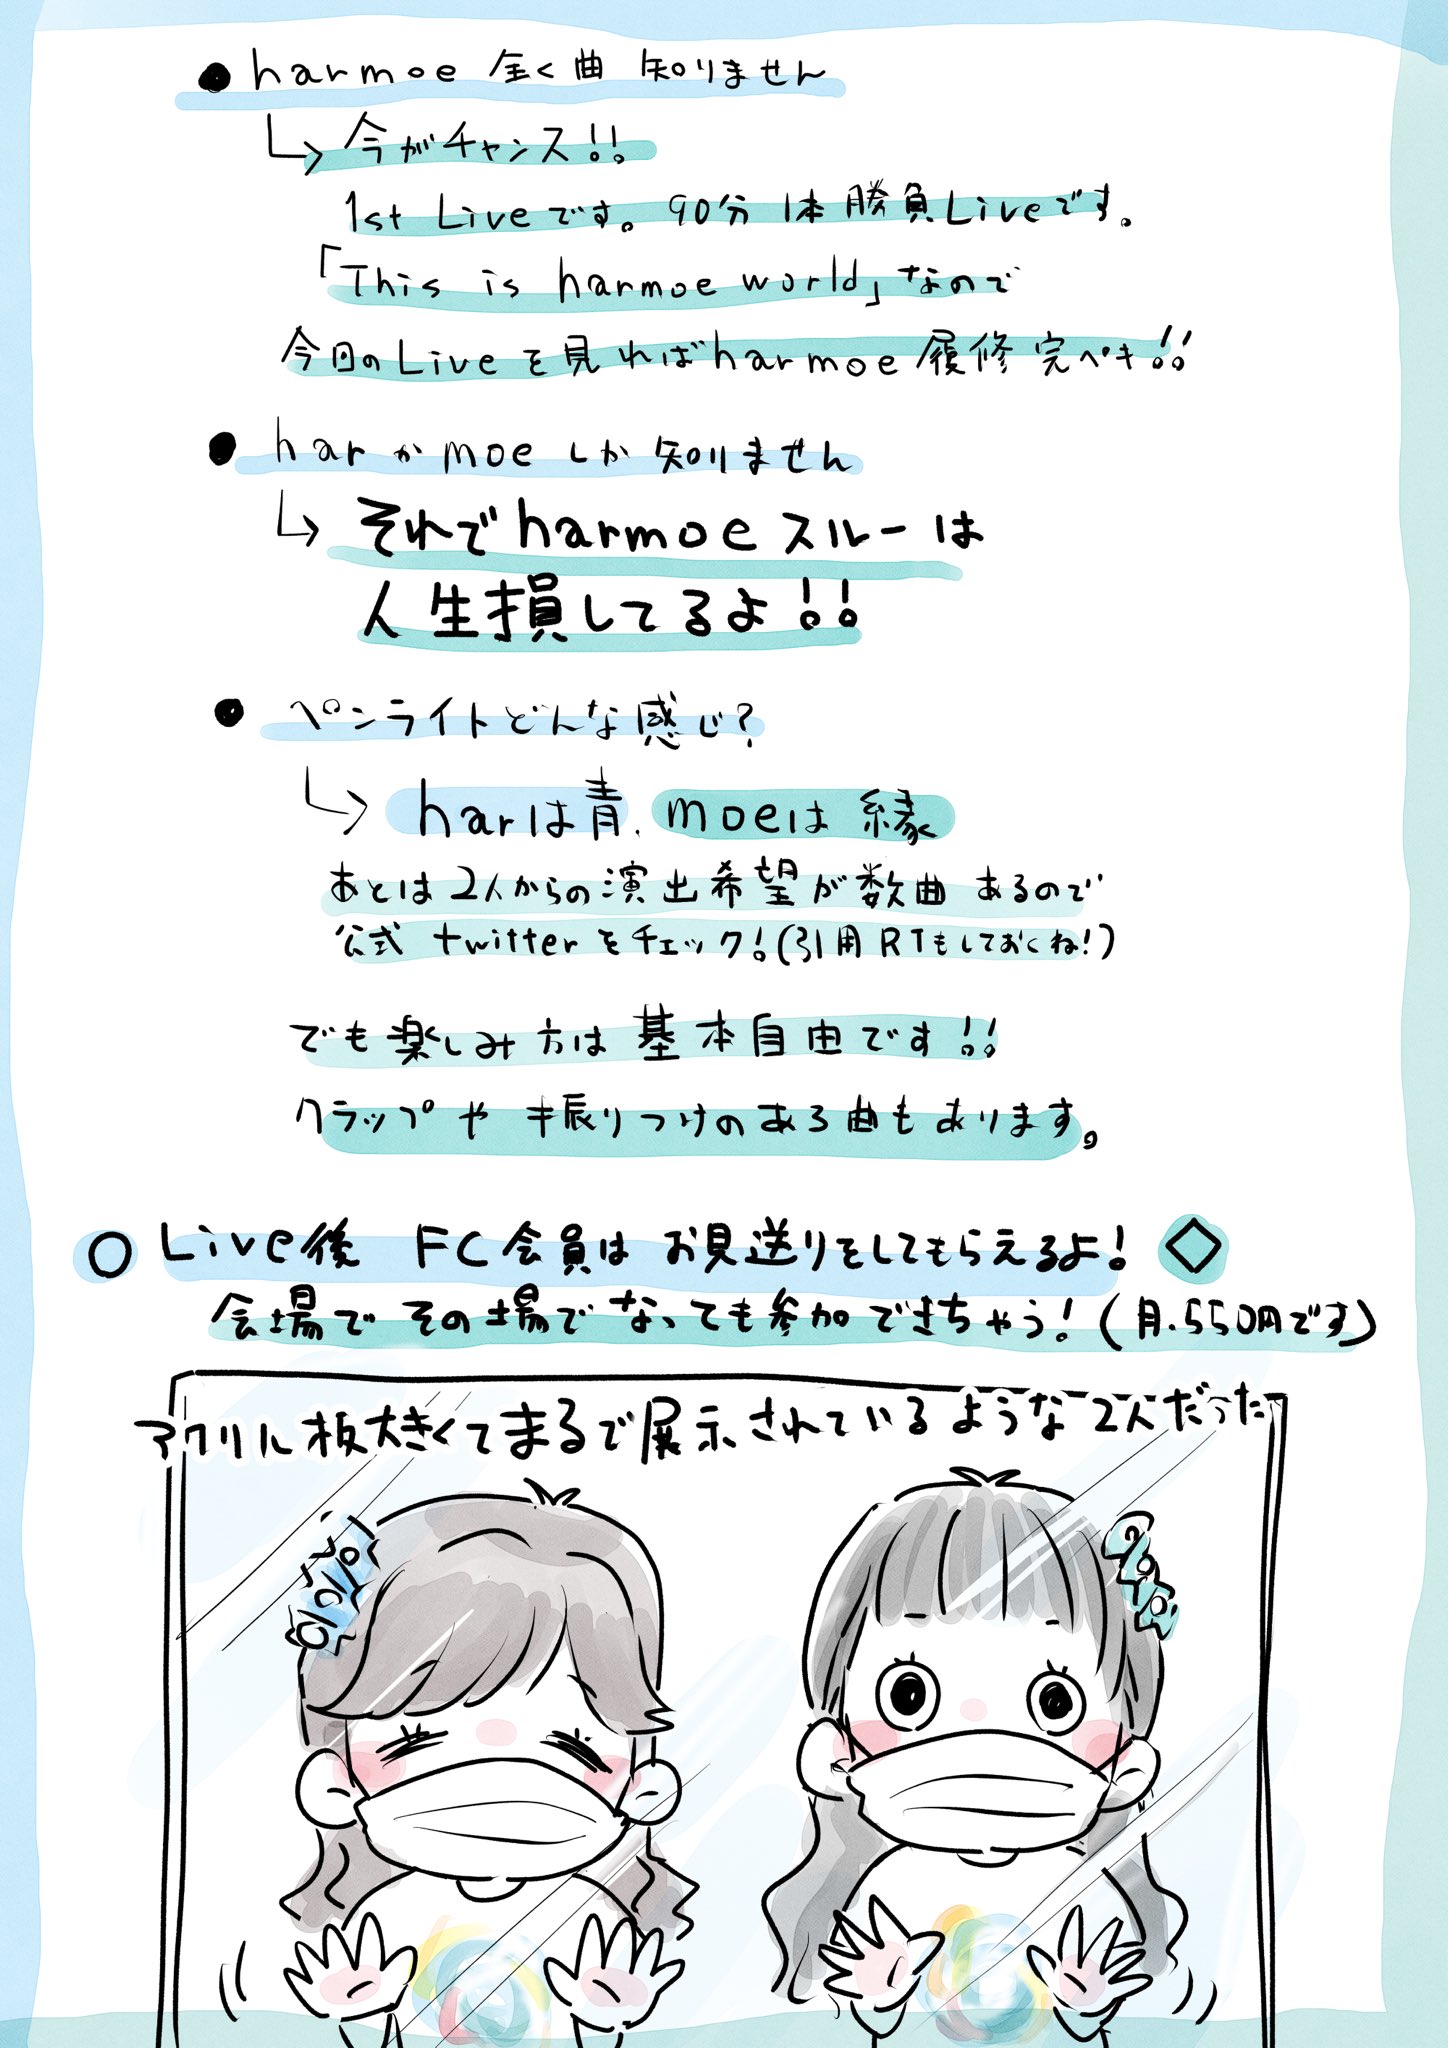 ● harmoe 全く曲 知りません
↳ 今がチャンス!!
1st Liveです。90分 1本 勝負Liveです。
「This is harmoe world」なので
今日のLiveを見ればharmoe履修完ペキ!!
● har か moe しか 知りません
↳ それでharmoeスルーは
人生損してるよ!!
● ペンライトどんな感じ?
↳ harは青、moeは 縁
あとは2人からの演出希望が数曲 あるので
公式 twitterをチェック!(引用RTもしておくね!)
でも楽しみ方は基本自由です!!
クラップや 手振りつけのある曲もあります。
○ Live後 FC会員は お見送りをしてもらえるよ! ◇
会場で その場でなっても参加できちゃう!(月.550円です)
アクリル板大きくてまるで展示されているような2人だった